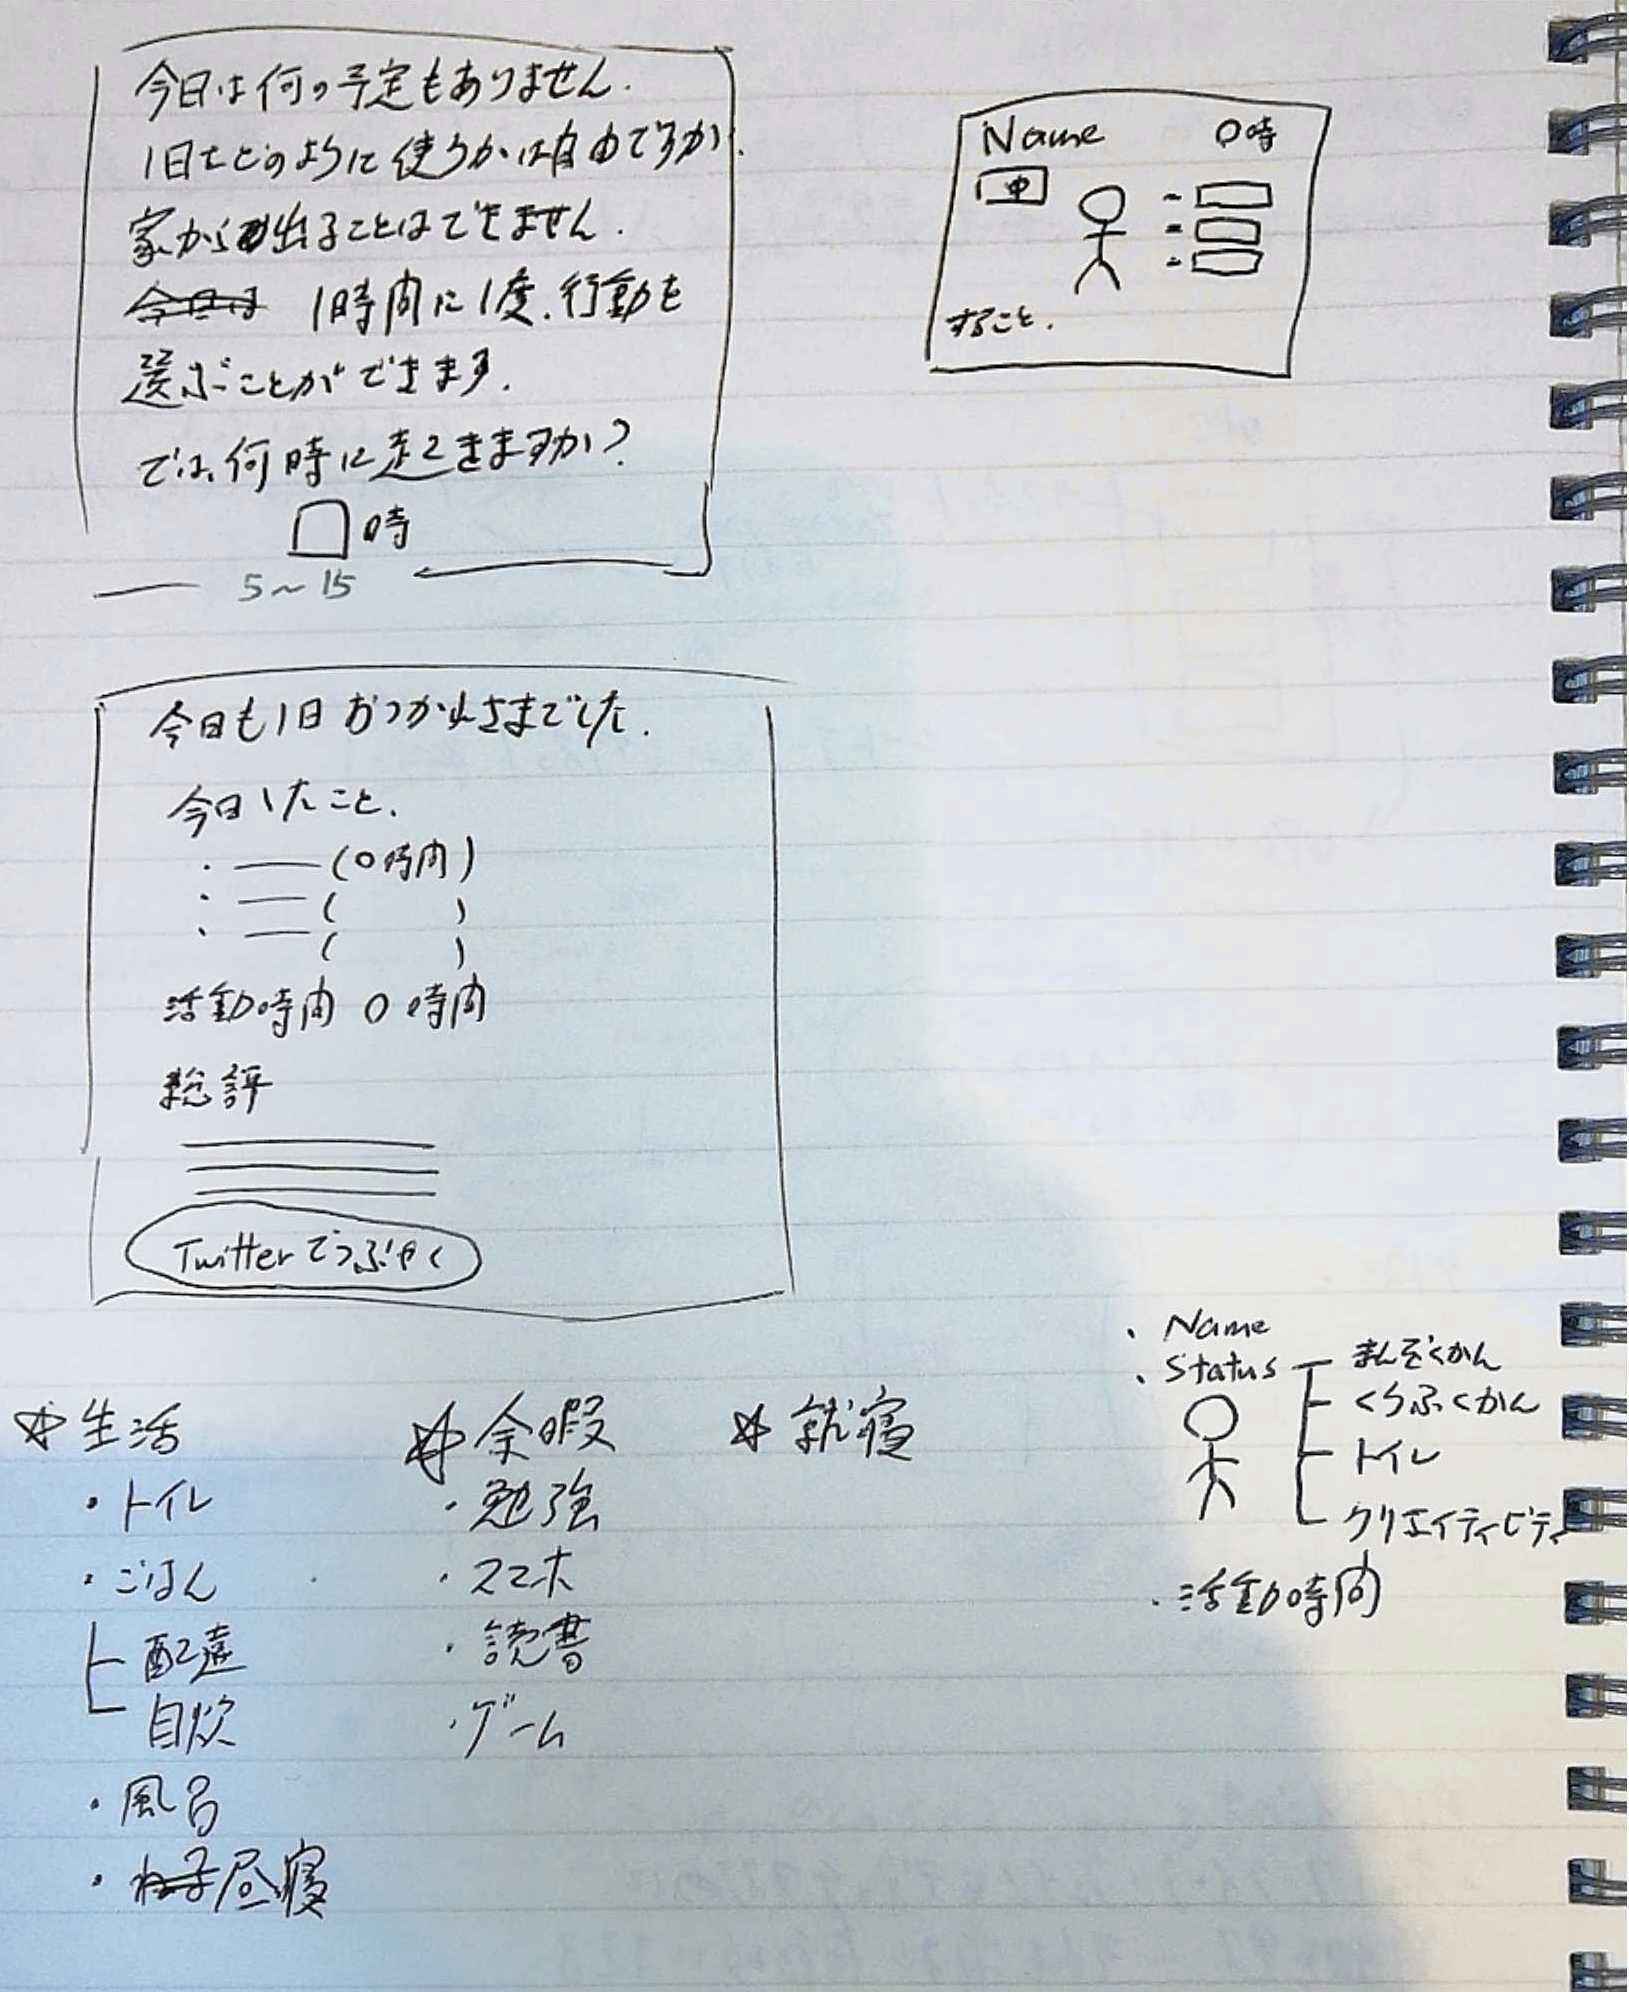 今日は何の予定もありません.
1日をどのように使うかは自由ですが.
家から出ることはできません.
今日は 1時間に1度.行動を
選ぶことができます.
では.何時に起きますか?
時
5～15
Name 0時
中
すること.
今日も1日おつかれさまでした.
今日したこと.
・ (0時間)
・ ( )
・ ( )
活動時間 0時間
総評
Twitterでつぶやく
☆生活
・トイレ
・ごはん
配達
自炊
・風呂
・ねる昼寝
☆余暇
・勉強
・スマホ
・読書
・ゲーム
☆就寝
・Name
・Status まんぞくかん
くうふくかん
トイレ
クリエイティビティ
・活動時間